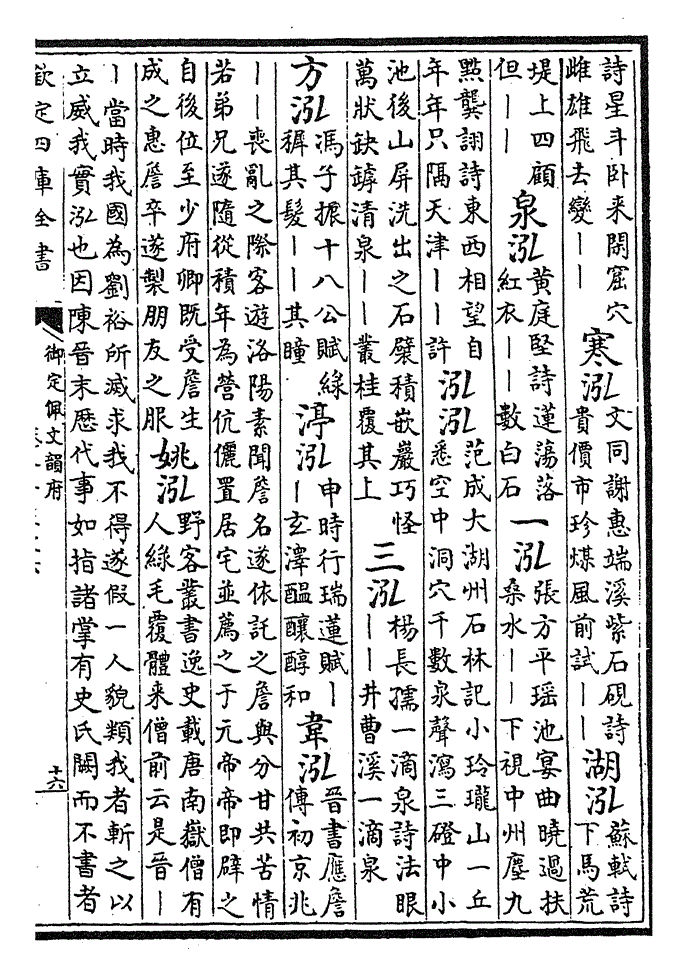 詩星斗卧来閟窟穴雌雄飛去變丨丨寒泓文同謝惠端溪紫石硯詩貴價市珍煤風前試丨丨湖泓蘇軾詩下馬荒
堤上四顧但丨丨泉泓黄庭堅詩蓮蕩落紅衣丨丨數白石一泓張方平瑶池宴曲曉過扶桑水丨丨下視中州塵九
㸃龔詡詩東西相望自年年只隔天津丨丨許泓泓范成大湖州石林記小玲瓏山一丘悉空中洞穴千數泉聲瀉三磴中小
池後山屏洗出之石襞積嵌巖巧怪萬狀缺罅清泉丨丨叢桂覆其上三泓楊長孺一滴泉詩法眼丨丨井曹溪一滴泉
方泓馮子振十八公賦綠穉其髮丨丨其瞳渟泓申時行瑞蓮賦丨丨玄澤醖釀醇和韋泓晉書應詹傳初京兆
丨丨喪亂之際客遊洛陽素聞詹名遂依託之詹與分甘共苦情若弟兄遂隨從積年為營伉儷置居宅並薦之于元帝帝即辟之
自後位至少府卿既受詹生成之惠詹卒遂製朋友之服姚泓野客叢書逸史載唐南嶽僧有人綠毛覆體来僧前云是晉丨
丨當時我國為劉裕所滅求我不得遂假一人貌類我者斬之以立威我實泓也因陳晉末歴代事如指諸掌有史氏闕而不書者
欽定四庫全書
御定佩文韻府
十六